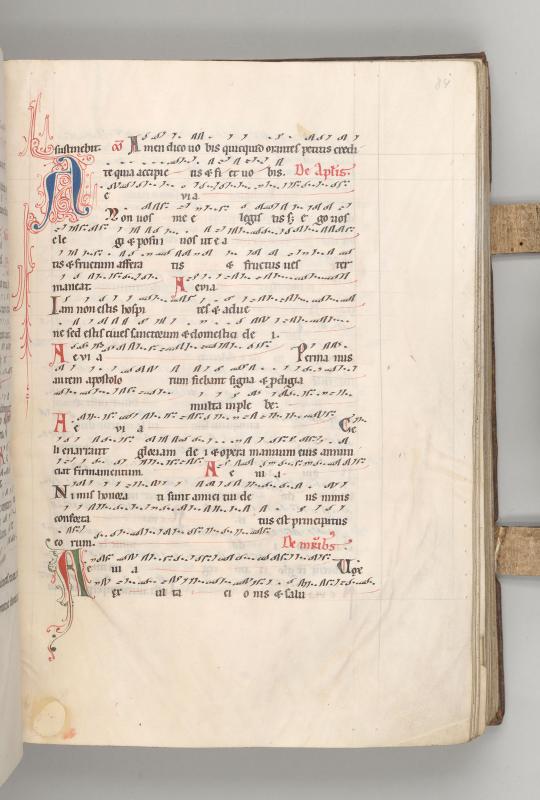 84
sustinebit. Amen dico vobis quicquid orantes petitis credi
te quia accipie tis & fi et vo bis. De Aplis.
A e via
Non vos me e legis tis s; e go vos
ele gi & posui vos ut ea
tis & fructum affera tis & fructus ves ter
maneat. A evia
Iam non estis hospi tes & adue
ne sed estis ciues sanctorum & domestici de i.
A e vi a Per ma nus
autem apostolo rum fiebant signa & pdigia
multa in ple be.
A e vi a Ce
li enarrant gloriam de i & opera manuum eius annun
ciat firmamentum. A e ui a
Nimis honora ti sunt amici tui de us nimis
confora tus est principatus
eo rum. De mribs
A e ui a Vox
ex ul ta ci o nis & salu